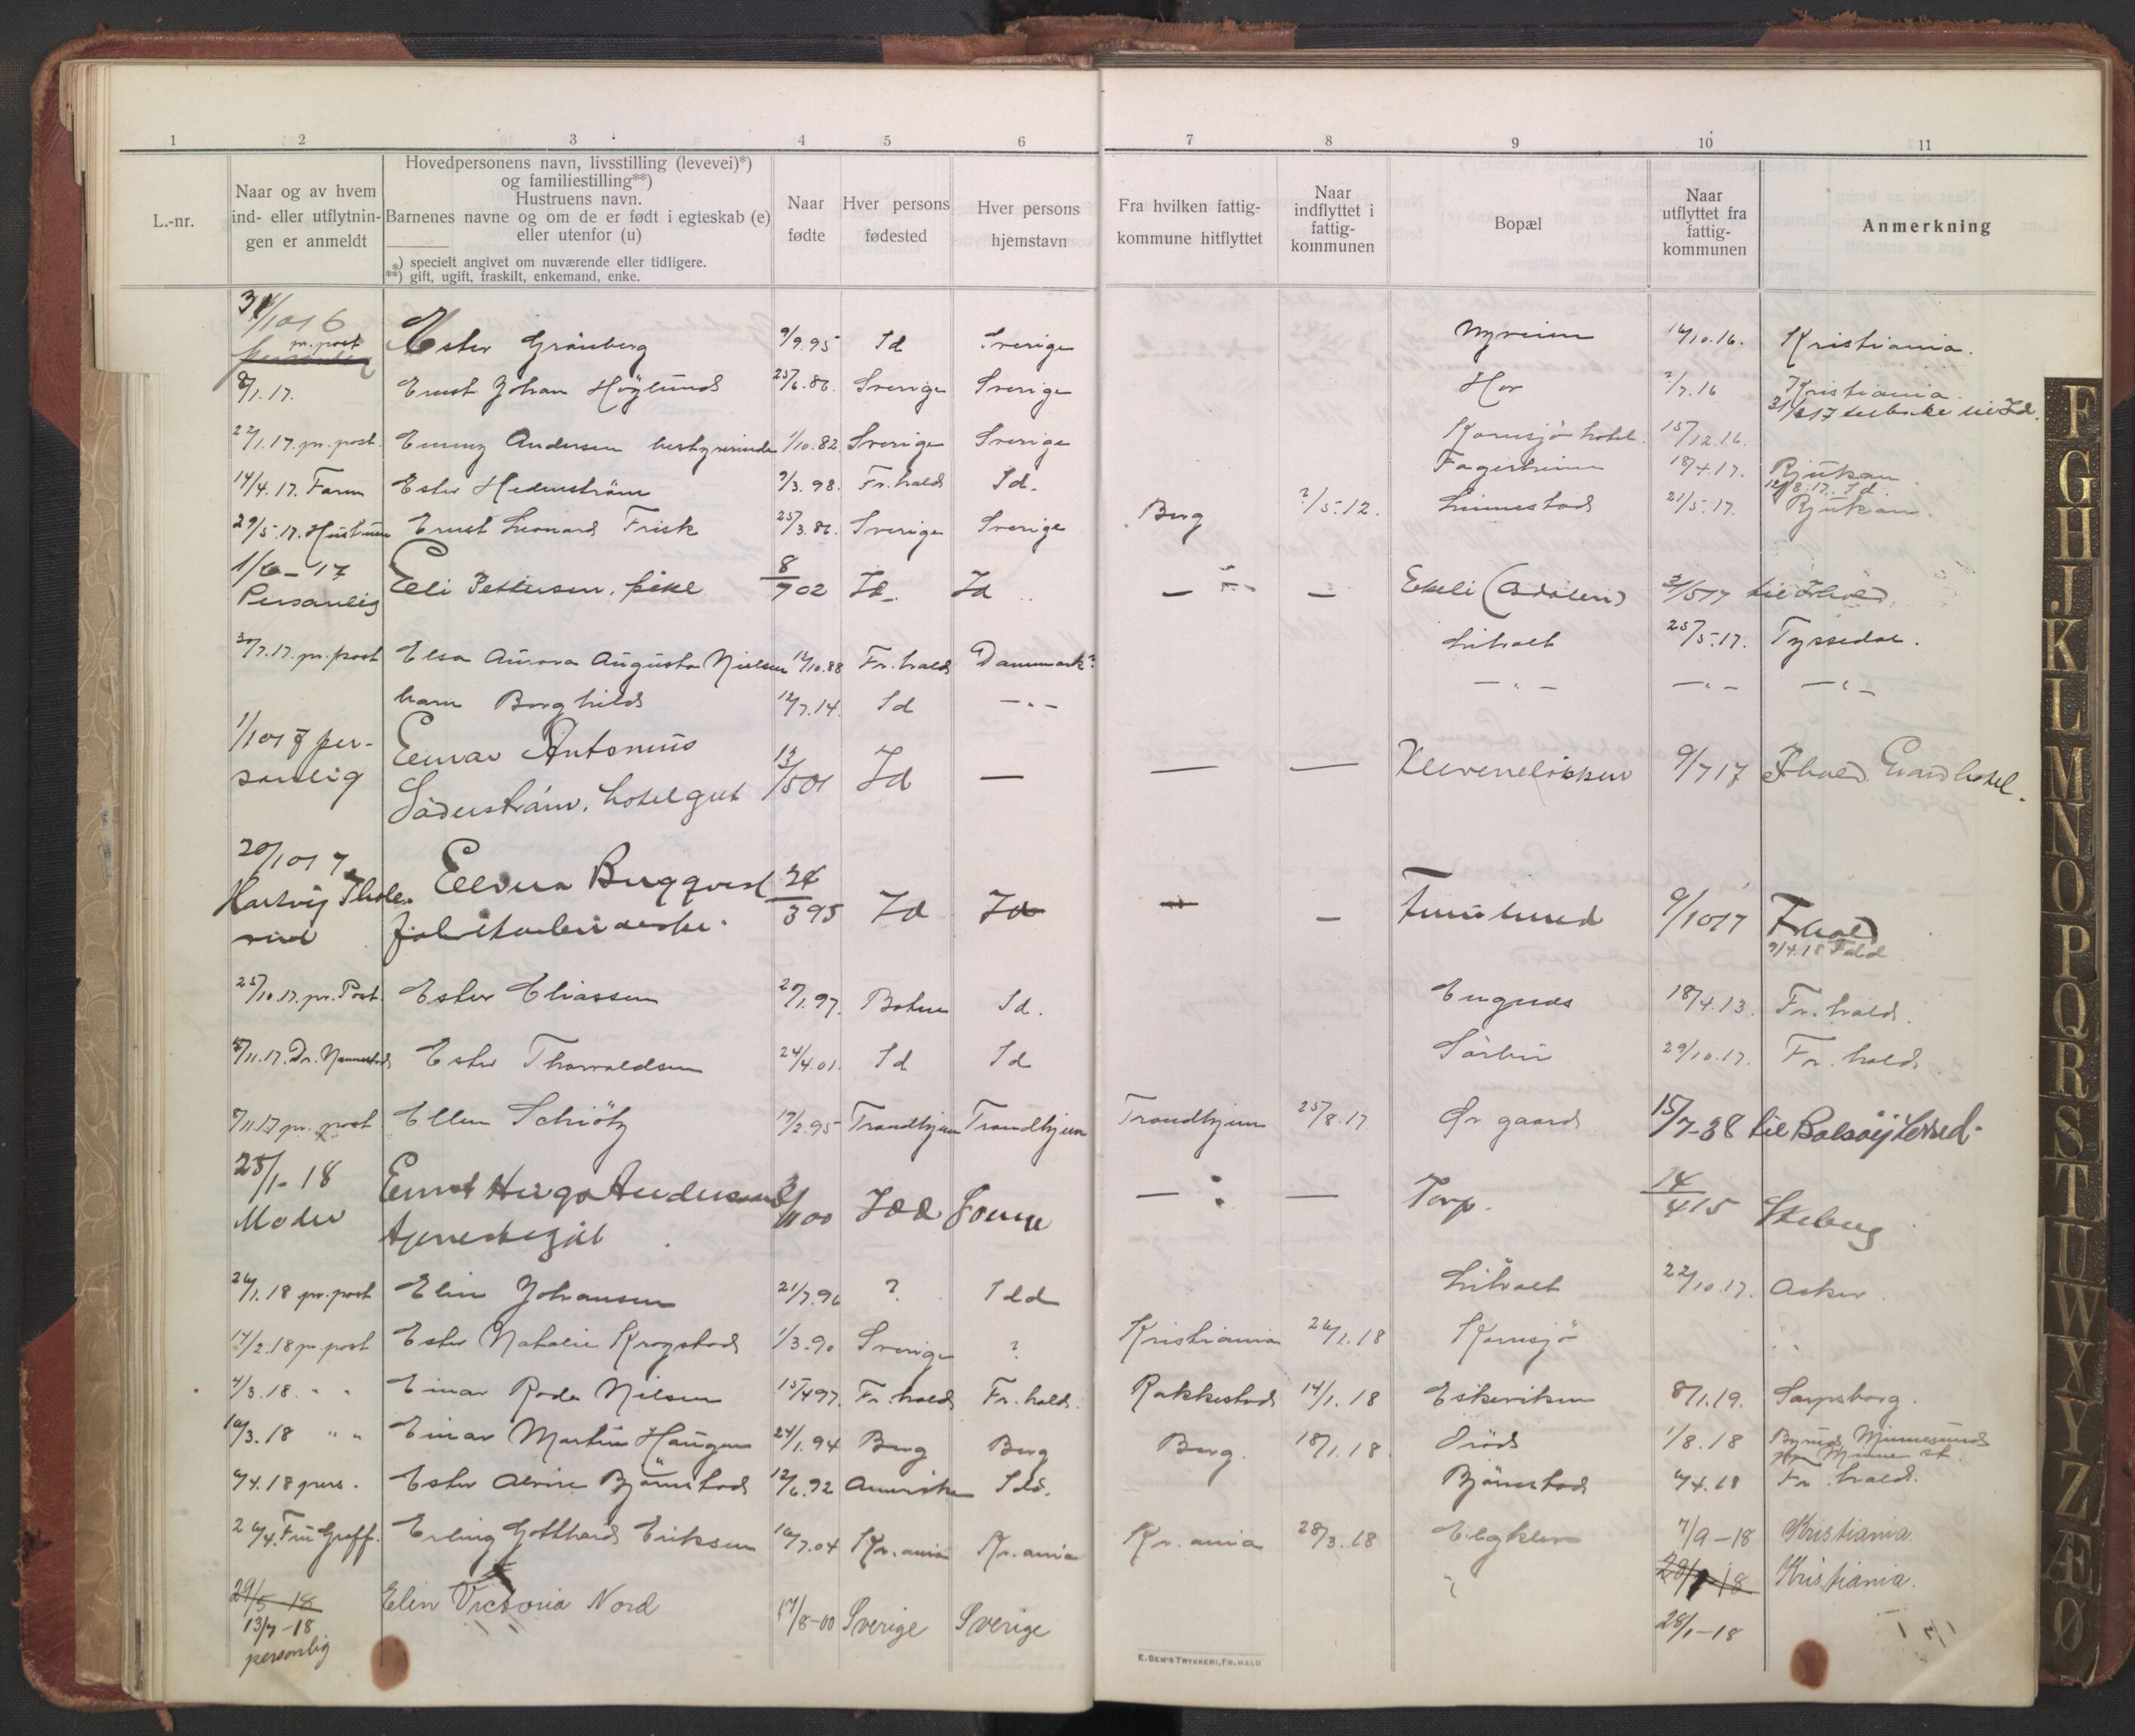 1 2 3 4 5 6 7 8 9 10 11
L.-nr.
Naar og av hvem
ind- eller utflytnin-
gen er anmeldt
Hovedpersonens navn, livsstilling (levevei)*)
og familiestilling**)
Hustruens navn.
Barnenes navne og om de er født i egteskab (e)
eller utenfor (u)
*) specielt angivet om nuværende eller tidligere.
**) gift, ugift, fraskilt, enkemand, enke.
Naar
fødte
Hver persons
fødested
Hver persons
hjemstavn
Fra hvilken fattig-
kommune hitflyttet
Naar
indflyttet i
fattig-
kommunen
Bopæl
Naar
utflyttet fra
fattig-
kommunen
Anmerkning
pr. post Ester Grönberg 9/9.95 Id Sverige 16/10.16. Kristiania.
8/1.17. Ernst Johan Höglund 25/6.86. Sverige Sverige Hov ?/7.16 Kristiania
22/1.17. pr. post. Emmy Andersen bestyrerinde 1/10.82 Sverige Sverige Kornsjö hotel. 15/12.16.
14/4.17. Faren Ester Hedenström 9/3.98. Fr.hald Id. Fagerheim 18/4.17. Rjukan
29/5.17. Hustruen Ernst Leonard Frisk 25/3.86. Sverige Sverige Berg ?/5.12. Linnestad 21/5.17. Rjukan.
1/6-17
Personlig Elli Pettersen, pike 8/7 02 Id. Id — — Ekeli til Fhald.
30/7.17. pr. post Elsa Aurora Augusta Nielsen 12/10.88 Fr.hald Danmark? Liholt 25/5.17. Tyssedal.
barn Borghild 12/7.14. Id —"— —"— —"— —"—
1/10 17 per-
sonlig
Einar Antonius
Söderström, hotelgut 13/5 01 Id — — — 9/7 17 Fhald Grand hotel.
20/10 17
Ellvira Bergqvist
fabrikarbeiderske. 24/3 95 Id Id — 9/10 17 Fhald
9/4.18 Fald
25/10.17. pr. Post. Ester Eliassen 20/1.97. Id. Engnes 18/4.13. Fr.hald.
8/11.17. Dr. Nannestad Ester Thorvaldsen 24/4.01. Id Id Sörlie 29/10.17. Fr.hald.
8/11.17 pr. post Ellen Schiötz 17/2.95 Trondhjem Trondhjem Trondhjem 25/8.17 Ör gaard 15/7-38 til Bolsöy herred.
25/1-18
Moder
Ernst Hugo Andersen
tjenestegut Idd — — Torp. 14/4 15 Skeberg
26/1.18 pr. post Elin Johansen 21/7.96 ? Idd Liholt 22/10.17. Asker.
14/2.18 pr. post Ester Natalie Krogstad 1/3.90 Sverige ? Kristiania 26/1.18 Kornsjö
4/3.18. " " Einar Rode Nilsen 15/4 97. Fr.hald Fr.hald. Rakkestad 14/1.18 Eskeviken 8/1.19. Sarpsborg.
16/3.18 " " Einar Martin Haugen 24/1.94 Berg Berg Berg. 18/1.18.Öröd 1/8.18 Minnesund
Minne st.
4/4.18 pers. Ester Alvine Björnstad 12/6.92 Amerika Idd. Björnstad 4/4.18 Fr.hald.
26/4. Fru Graff. Erling Gotthard Eriksen 16/7.04 Kr.ania Kr.ania Kr.ania 28/3.18 Elgklev 7/9-18 Kristiania.
29/5-18
13/7-18
personlig
Elin Victoria Nord 17/8-00 Sverige Sverige " Kristiania.
28/1-18
E. SEM'S TRYKKERI, FR.HALD
F
G
H
J
K
L
M
N
O
P
Q
R
S
T
U
W
X
Y
Z
Æ
Ø